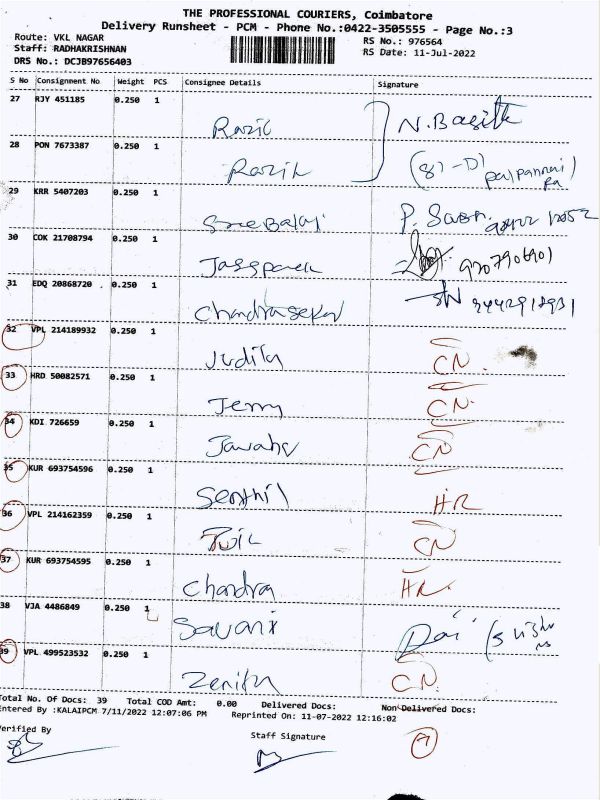 THE PROFESSIONAL COURIERS, Coimbatore
Delivery Runsheet - PCM - Phone No.:0422-3505555 - Page No.:3
Route: VKL NAGAR
RS No.: 976564
Staff: RADHAKRISHNAN
RS Date: 11-Jul-2022
DRS No.: DCJB97656403
S No Consignment No Weight PCS Consignee Details Signature
27 RJY 451185 0.250 1
N.Basith
28 PON 7673387 0.250 1
29 KRR 5407203 0.250 1
Sree Balaji
30 COK 21708794 0.250 1
9207906901
31 EDQ 20868720 0.250 1
Chandrasekar
32 VPL 214189932 0.250 1
Judila CN.
33 HRD 50082571 0.250 1
Jerry CN.
34 KDI 726659 0.250 1
CN
35 KUR 693754596 0.250 1
Senthil HR
36 VPL 214162359 0.250 1
CN
37 KUR 693754595 0.250 1
Chandra HR
38 VJA 4486849 0.250 1
39 VPL 499523532 0.250 1
Zenith CN.
Total No. Of Docs: 39 Total COD Amt: 0.00 Delivered Docs: Non Delivered Docs:
Entered By :KALAIPCM 7/11/2022 12:07:06 PM Reprinted On: 11-07-2022 12:16:02
Verified By Staff Signature
7